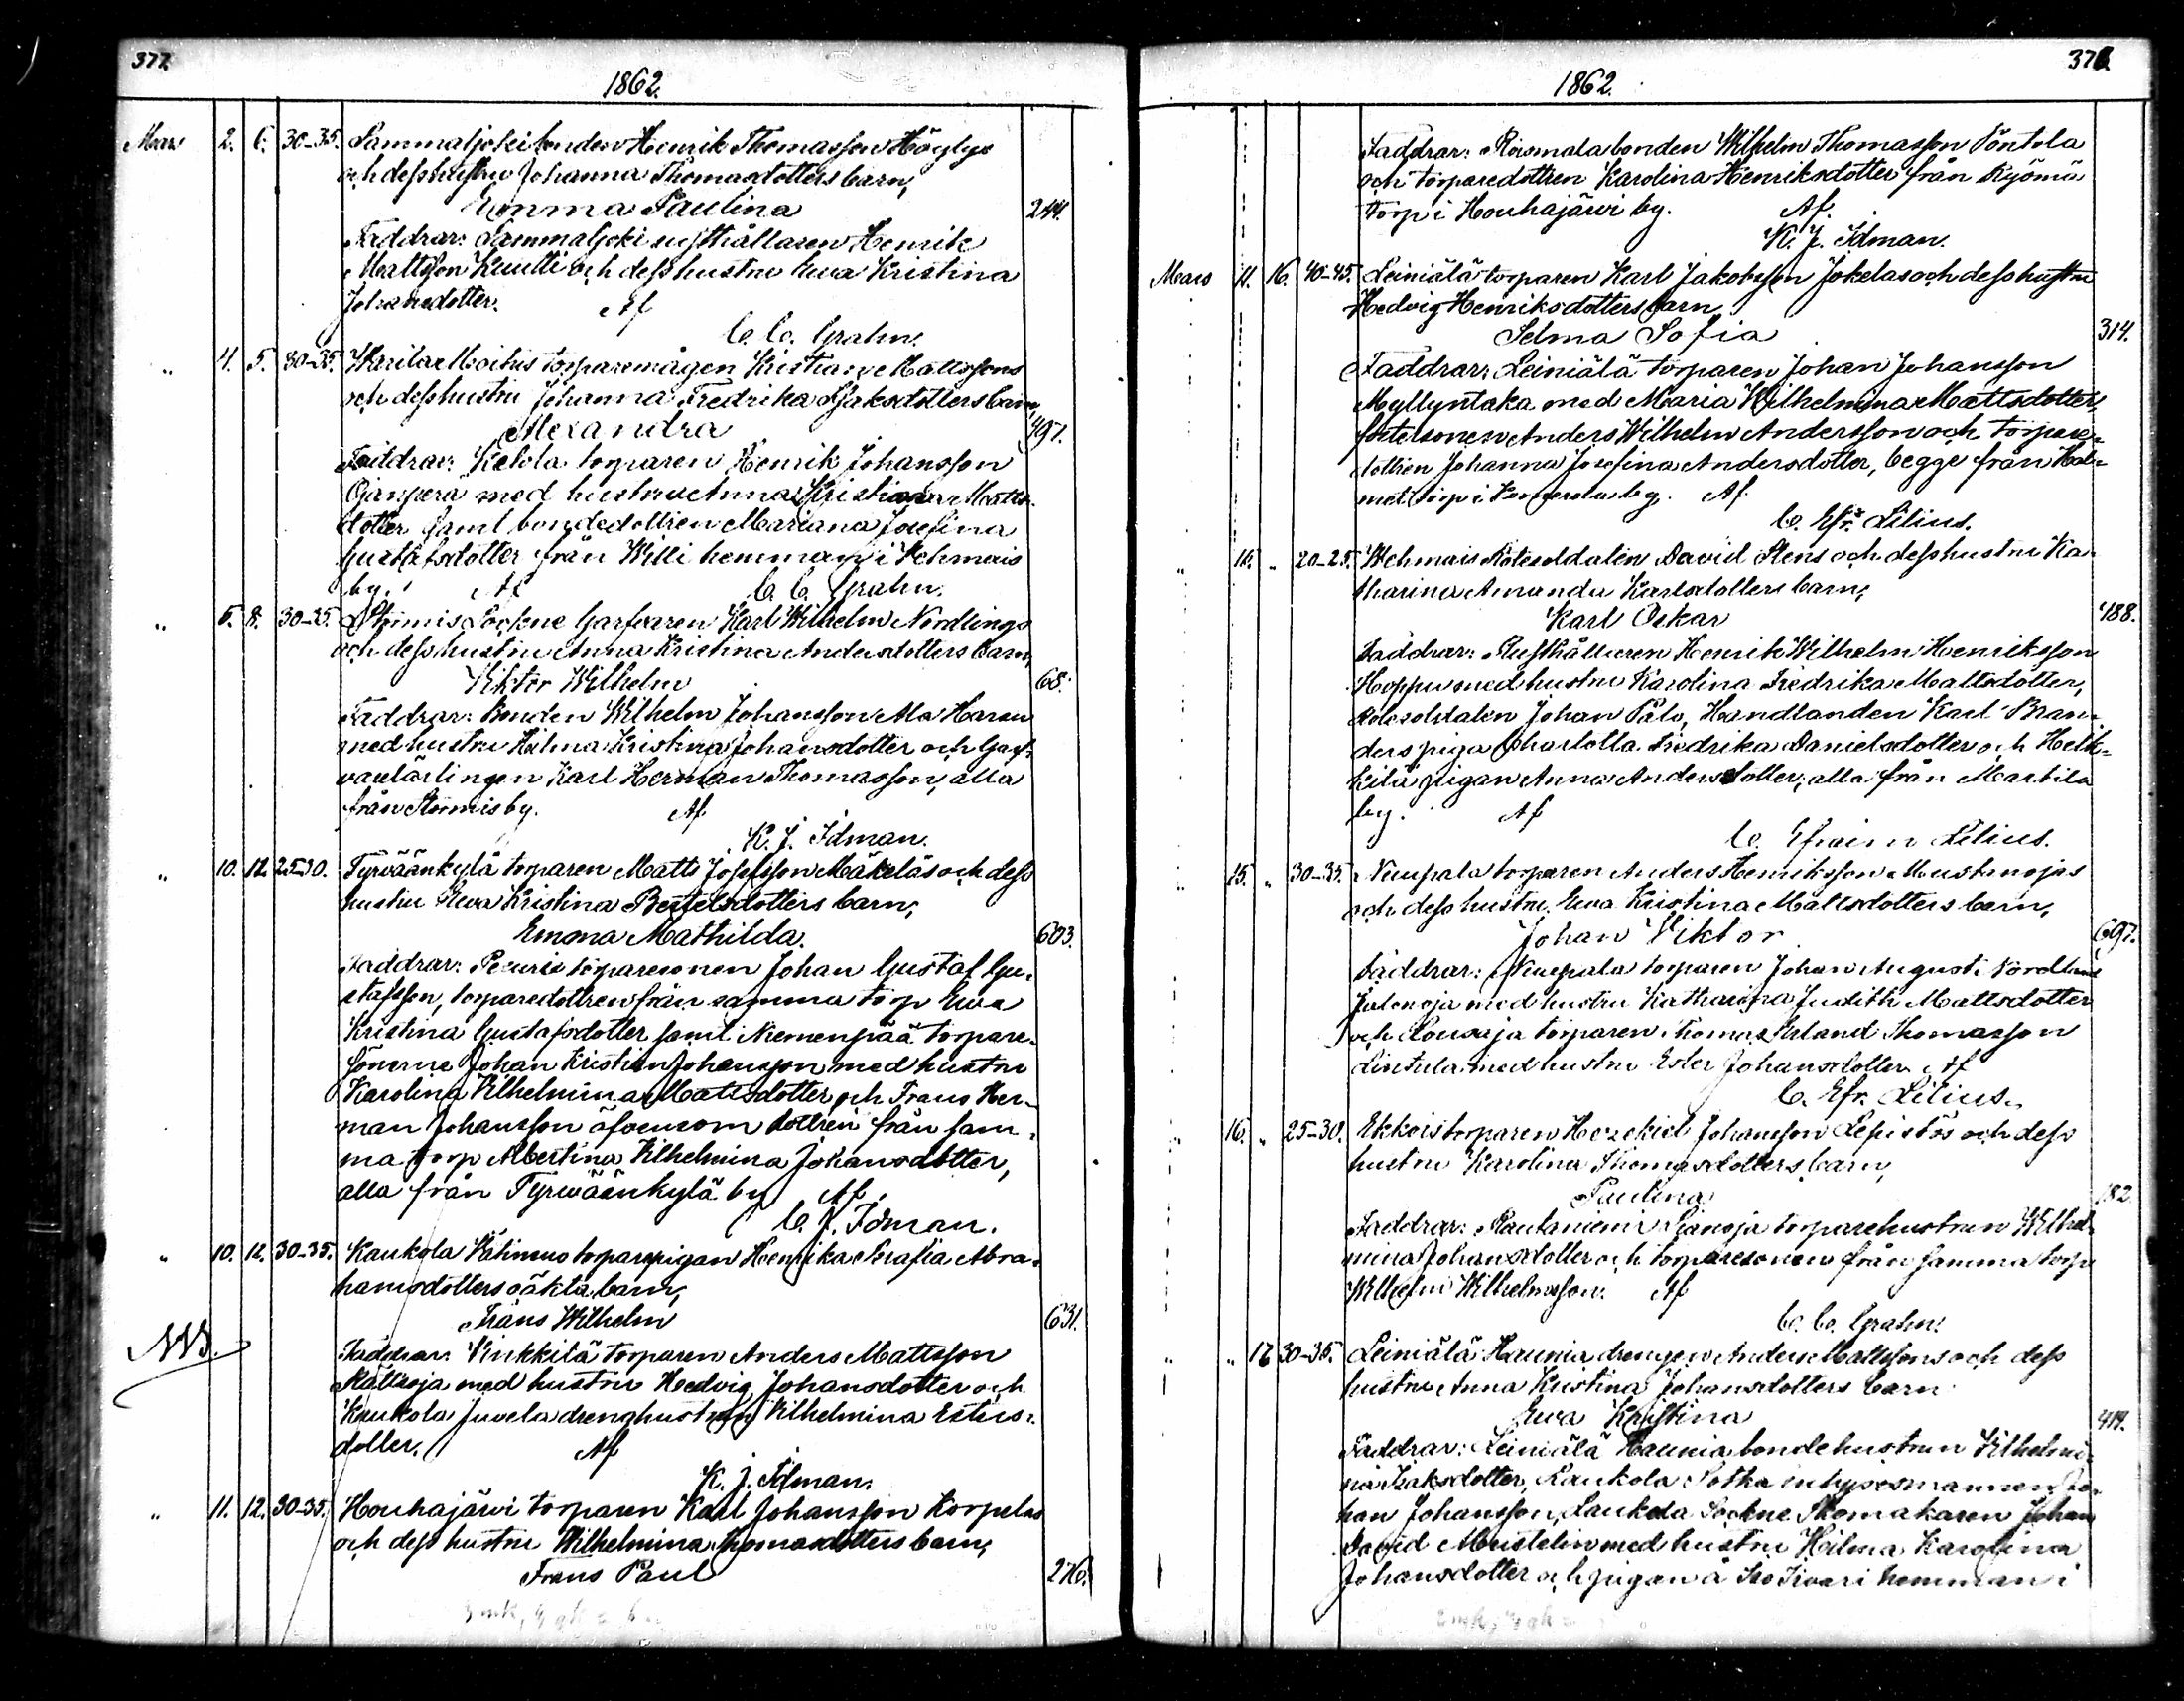 377
1862.
Mars 2. 6. 30-35. Sammaljoki bonden Henrik Thomasson Höylys
och dess hustru Johanna Thomasdotters barn,
Emma Paulina 244.
Faddrar: Sammaljoki rusthållaren Henrik
Mattsson Kuutti och dess hustru Ewa Kristina
Johansdotter. Af
C. C. Grahn.
" 4. 5. 30-35. Karila Moitus torparemågen Kristian Mattssons
och dess hustru Johanna Fredrika Isaksdotters barn,
Alexandra 497.
Faddrar: Ketola torparen Henrik Johansson
Ojanperä med hustru Anna Kristiana Matts-
dotter samt bondedottren Mariana Josefina
Gustafsdotter från Willi hemman i Vehmais
by. Af C. C. Grahn.
" 5. 8. 30-35. Stormis Sockne Garfvaren Karl Wilhelm Nordlings
och dess hustru Anna Kristina Andersdotters barn,
Viktor Wilhelm 68.
Faddrar: Bonden Wilhelm Johansson Ala Haron
med hustru Hilma Kristina Johansdotter och Garf-
varelärlingen Karl Herman Thomasson, alla
från Stormis by. Af
K. J. Idman.
" 10. 12. 25-30. Tyrväänkylä torparen Matts Josefsson Mäkeläs och dess
hustru Ewa Kristina Bertelsdotters barn,
Emma Mathilda. 603.
Faddrar: torparesonen Johan Gustaf Gu-
stafsson, torparedottren från samma torp Ewa
Kristina Gustafsdotter samt Niemenpää torpare-
sönerne Johan Kristian Johansson med hustru
Karolina Vilhelmina Mattsdotter och Frans Her-
man Johansson äfvensom dottren från sam-
ma torp Albertina Vilhelmina Johansdotter,
alla från Tyrwäänkylä by Af.
C. J. Idman.
" 10. 12. 30-35. Kaukola torparepigan Henrika Serafia Abra-
hamsdotters oäkta barn,
Frans Wilhelm 631.
NB.
Faddrar: Vinkkilä torparen Anders Mattsson
Rättöoja med hustru Hedvig Johansdotter och
Kaukola Juvela drenghustrun Vilhelmina Esters-
dotter. Af
K. J. Idman.
" 11. 12. 30-35. Houhajärwi torparen Karl Johansson Korpelas
och dess hustru Wilhelmina Thomasdotters barn,
Frans Paul 276.
378.
1862.
Faddrar: Roismala bonden Wilhelm Thomasson Pöntola
och torparedottren Karolina Henriksdotter från Kyömä
torp i Houhajärwi by. Af.
K. J. Idman.
Mars 11. 16. 40-45. Leiniälä torparen Karl Jakobsson Jokelas och dess hustru
Hedvig Henriksdotters barn,
Selma Sofia 314.
Faddrar: Leiniälä torparen Johan Johansson
Myllyntaka med Maria Wilhelmina Mattsdotter,
fostersonen Anders Wilhelm Andersson och torpare-
dottren Johanna Josefina Andersdotter, begge från
torp i by. Af.
C. Efr. Lilius.
" " 20-25. Wehmais Rotesoldaten David Stens och dess hustru Ka-
tharina Amanda Karlsdotters barn,
Karl Oskar 488.
Faddrar: Rusthållaren Henrik Wilhelm Henriksson
Hoppu med hustru Karolina Fredrika Mattsdotter,
Rotesoldaten Johan Pålo, Handlanden Karl Bran-
ders piga Charlotta Fredrika Danielsdotter och Heik-
kilä pigan Anna Andersdotter, alla från Martila
by. Af
C. Efraim Lilius.
" 15. " 30-35. Nuupala torparen Anders Henriksson Mustanojas
och dess hustru Ewa Kristina Mattsdotters barn,
Johan Viktor 697.
Faddrar: Nuupala torparen Johan August Nordlund
Jutenoja med hustru Katharina Judith Mattsdotter
och Lousaja torparen Thomas Erland Thomasson
Lintula med hustru Ester Johansdotter. Af
C. Efr. Lilius.
" 16. " 25-30. Ekkois torparen Hezekiel Johansson Lepistös och dess
hustru Karolina Thomasdotters barn,
Paulina 182.
Faddrar: Rautaniemi torparehustrun Wilhel-
mina Johansdotter och torparesonen från samma torp
Wilhelm Wilhelmsson. Af
C. C. Grahn.
" " 17. 30-35. Leiniälä Haunia drengen Anders Mattssons och dess
hustru Anna Kristina Johansdotters barn
Ewa Kristina 414.
Faddrar: Leiniälä Haunia bondehustrun Vilhelmi-
na Isaksdotter, Kaukola Sotka inhysesmannen Jo-
han Johansson, Laukola Sockne Skomakaren Johan
David Mustelin med hustru Hilma Karolina
Johansdotter och pigan å Iso Kwari hemman i